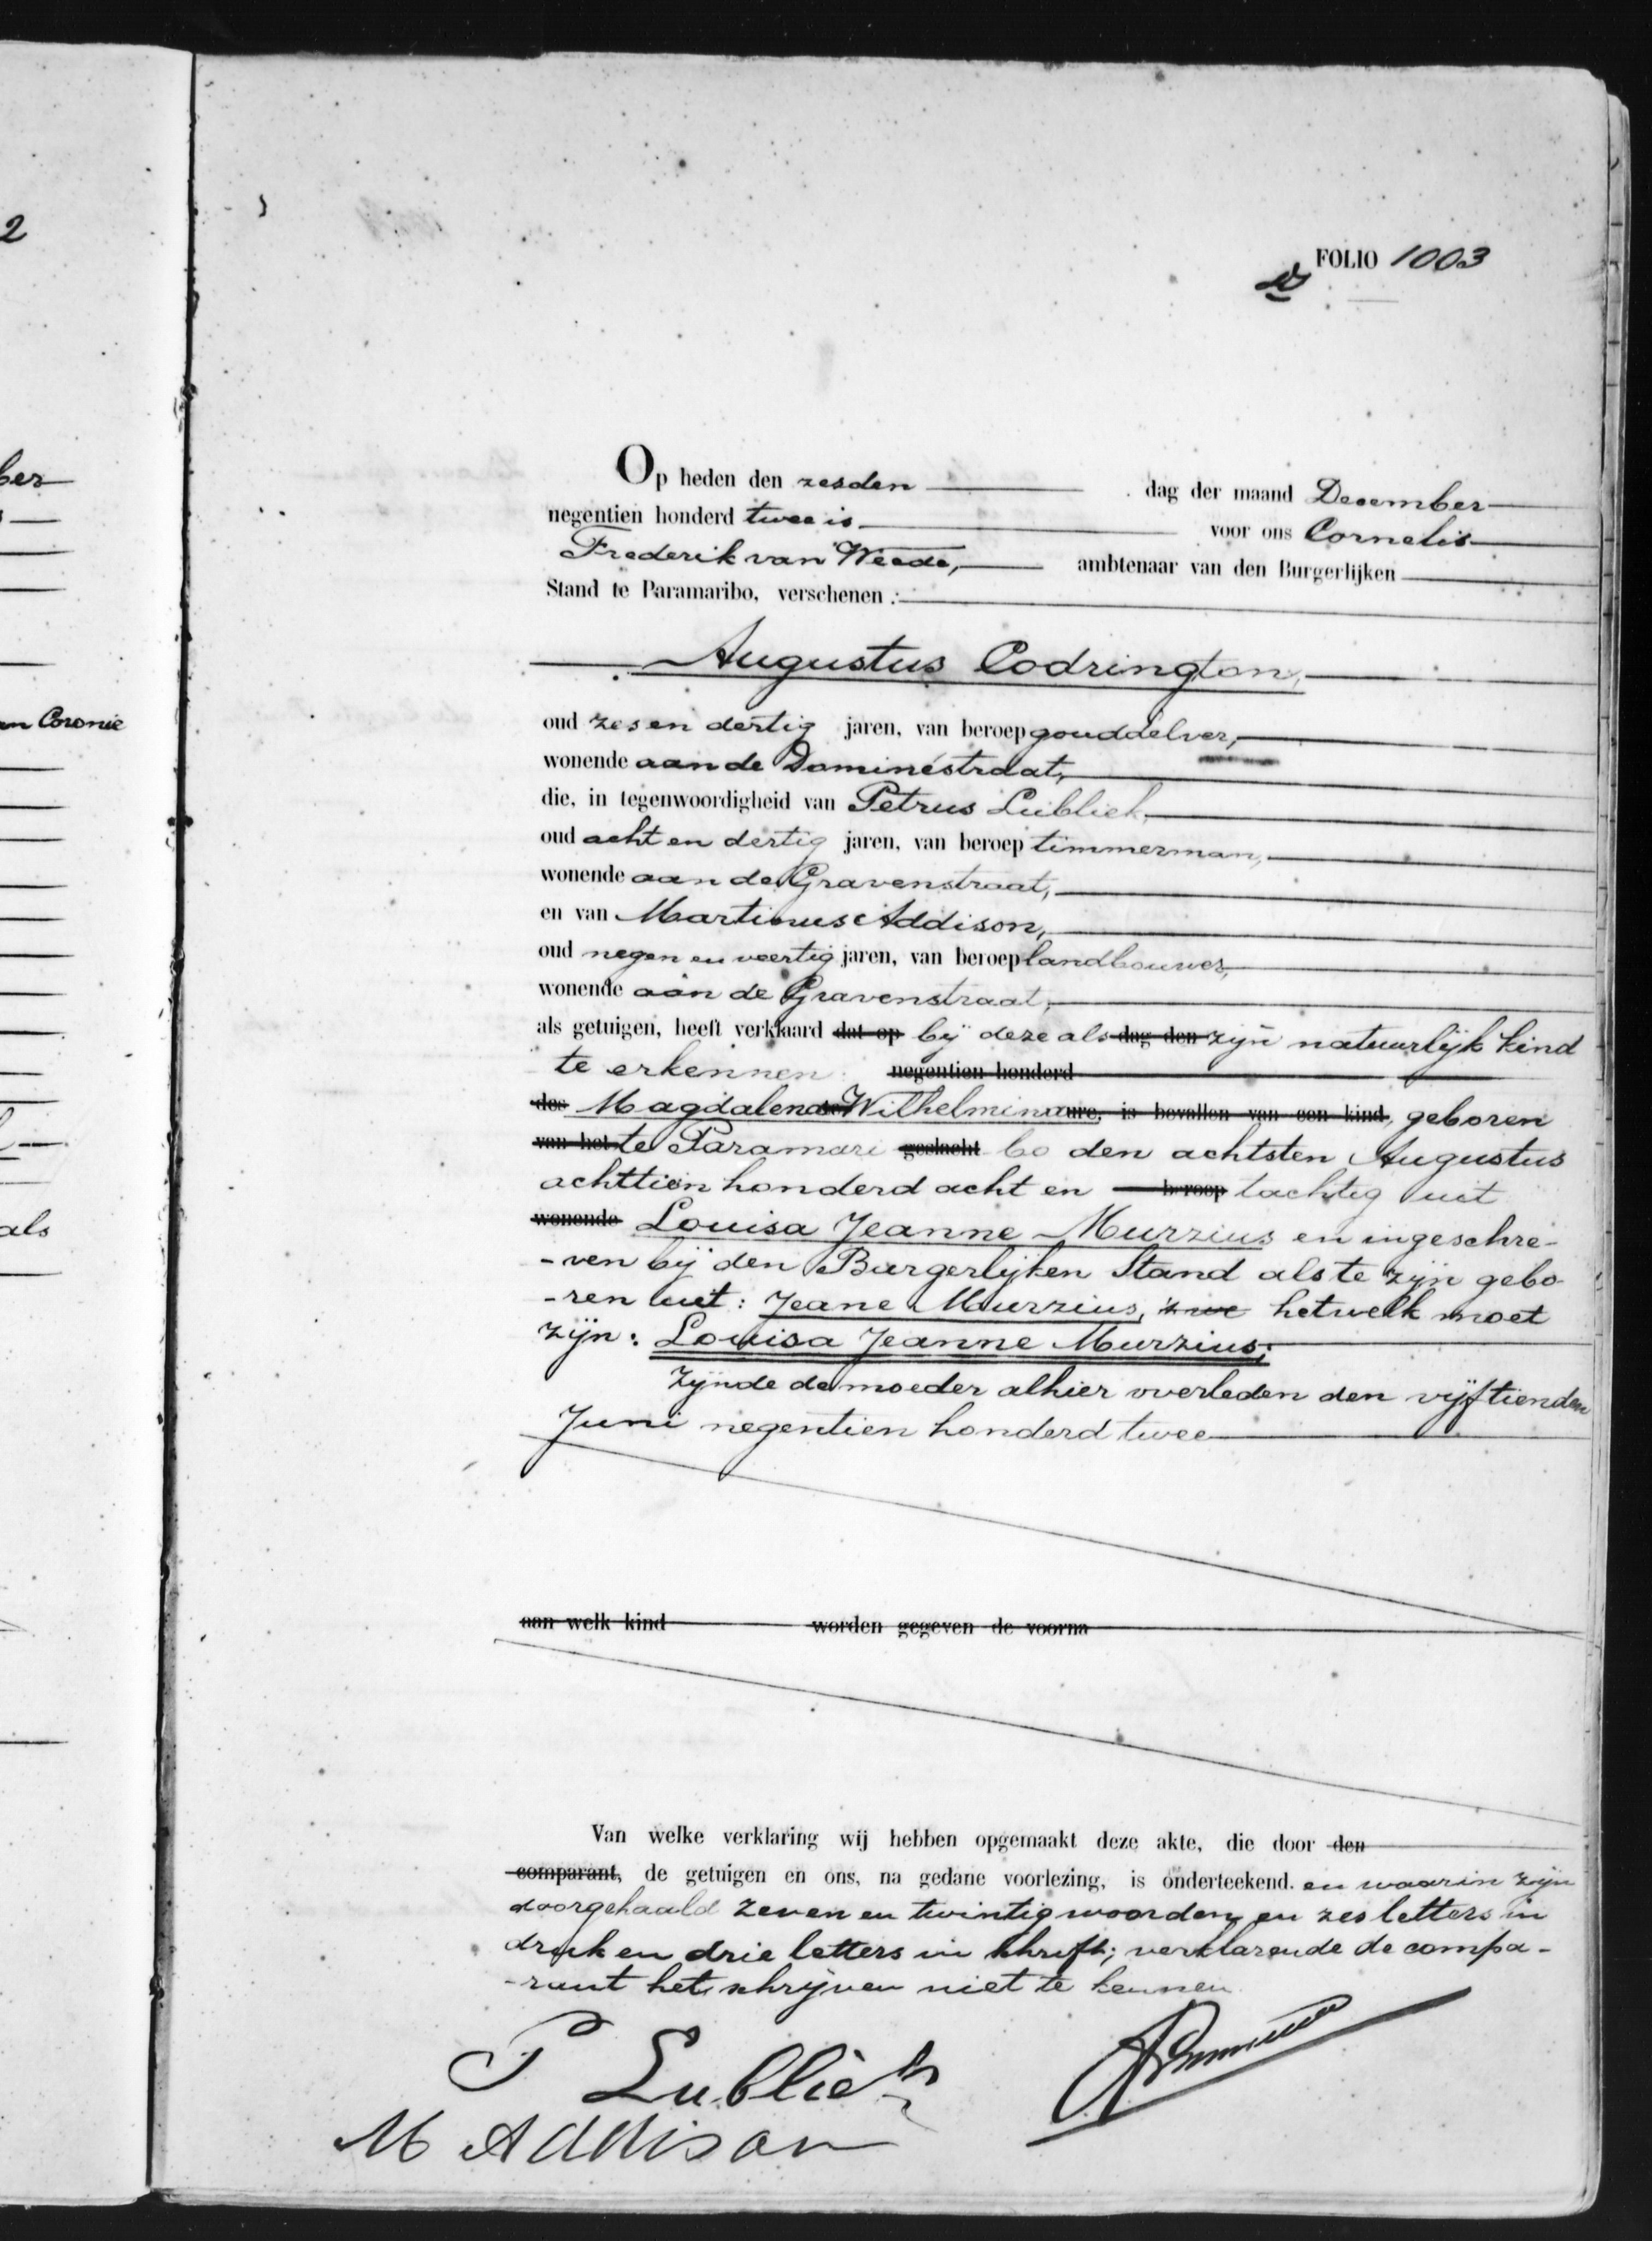 2
ber
an Coronie
als
FOLIO 1003
Op heden den zesden dag der maand December
negentien honderd twee is voor ons Cornelis
Frederik van Weede, ambtenaar van den Burgerlijken
Stand te Paramaribo, verschenen :
Augustus Codrington,
oud zes en dertig jaren, van beroep gouddelver,
wonende aan de Dominéstraat,
die, in tegenwoordigheid van Petrus Lubliek,
oud acht en dertig jaren, van beroep timmerman,
wonende aan de Gravenstraat,
en van Martinus Addison,
oud negen en veertig jaren, van beroep landbouwer,
wonende aan de Gravenstraat,
als getuigen, heeft verklaard dat op bij deze als dag den zijn natuurlijk kind
te erkennen negentien honderd
des Magdalena Wilhelmina ure, is bevallen van een kind, geboren
van het te Paramari geslacht bo den achtsten Augustus
achttien honderd acht en beroep tachtig uit
wonende Louisa Jeanne Murzius en ingeschre-
-ven bij den Burgerlijken Stand als te zijn gebo-
-ren uit: Jeane Murzius, hetwelk moet
zijn: Louisa Jeanne Murzius;
zijnde de moeder alhier overleden den vijftienden
Juni negentien honderd twee
aan welk kind worden gegeven de voorna
Van welke verklaring wij hebben opgemaakt deze akte, die door den
comparant, de getuigen en ons, na gedane voorlezing, is onderteekend. en waarin zijn
doorgehaald zeven en twintig woorden en zes letters in
druk en drie letters in schrift; verklarende de compa-
-rant het schrijven niet te kennen
P Lubliek
M Addison